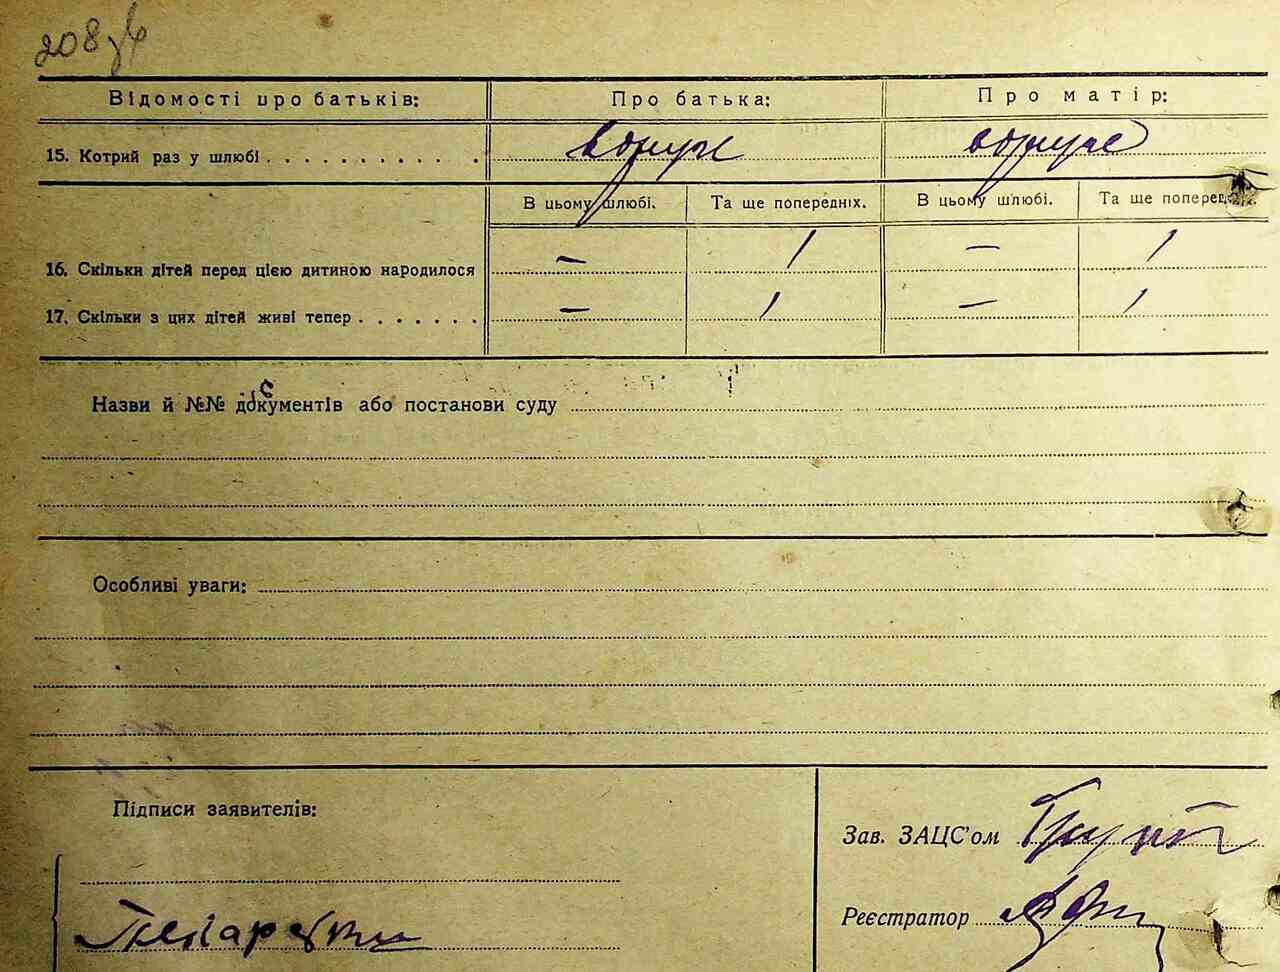 208
Відомості про батьків: Про батька: Про матір:
15. Котрий раз у шлюбі . . . . . . . . . . . вдруге вдруге
В цьому шлюбі. Та ще попередніх. В цьому шлюбі. Та ще поперед
16. Скільки дітей перед цією дитиною народилося – 1 – 1
17. Скільки з цих дітей живі тепер . . . . . . . – 1 – 1
Назви й №№ документів або постанови суду
Особливі уваги:
Підписи заявителів:
Зав. ЗАЦС'ом
Реєстратор